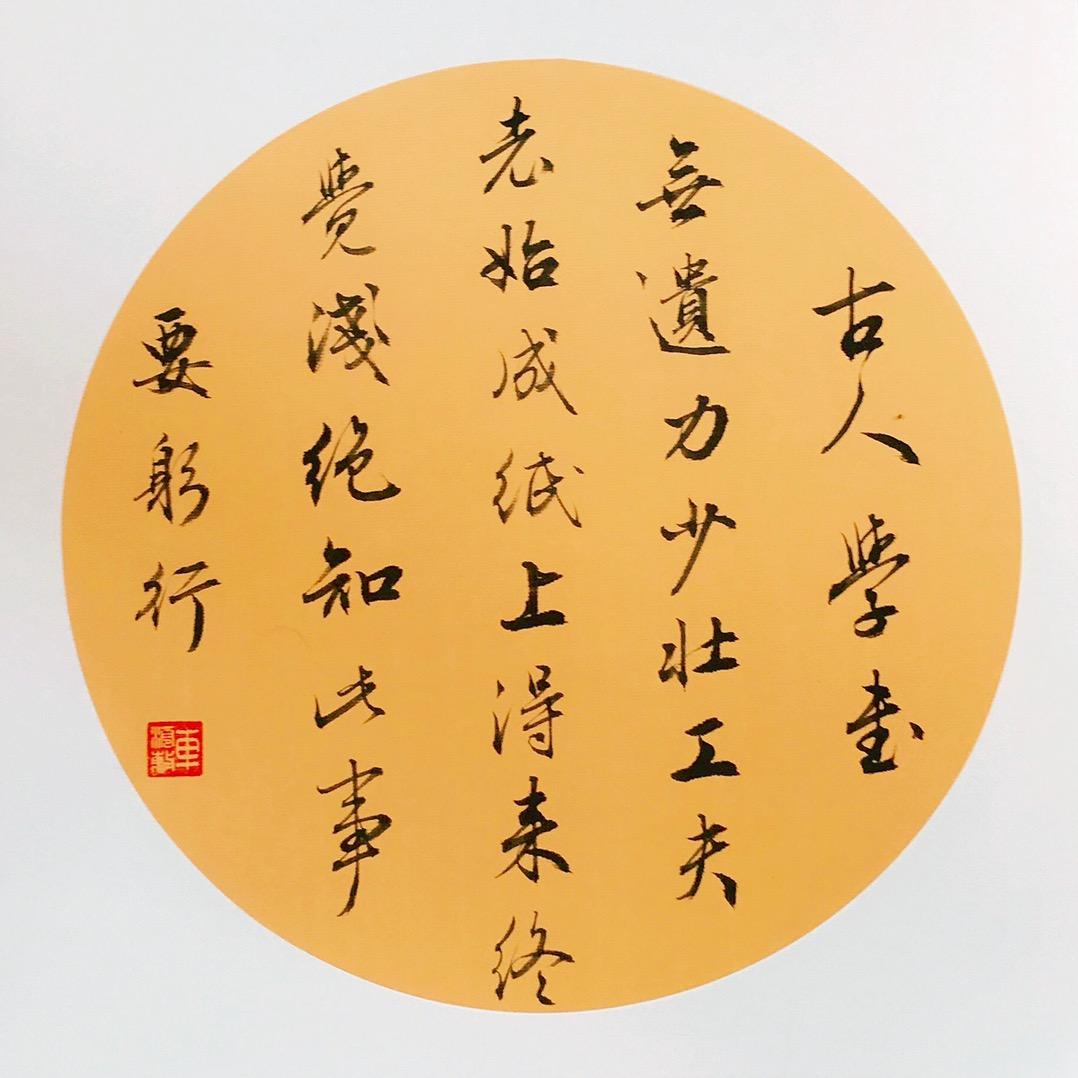 古人學
無遺力少壯工夫
老始成紙上得来終
覺淺絶知此事
要躬行